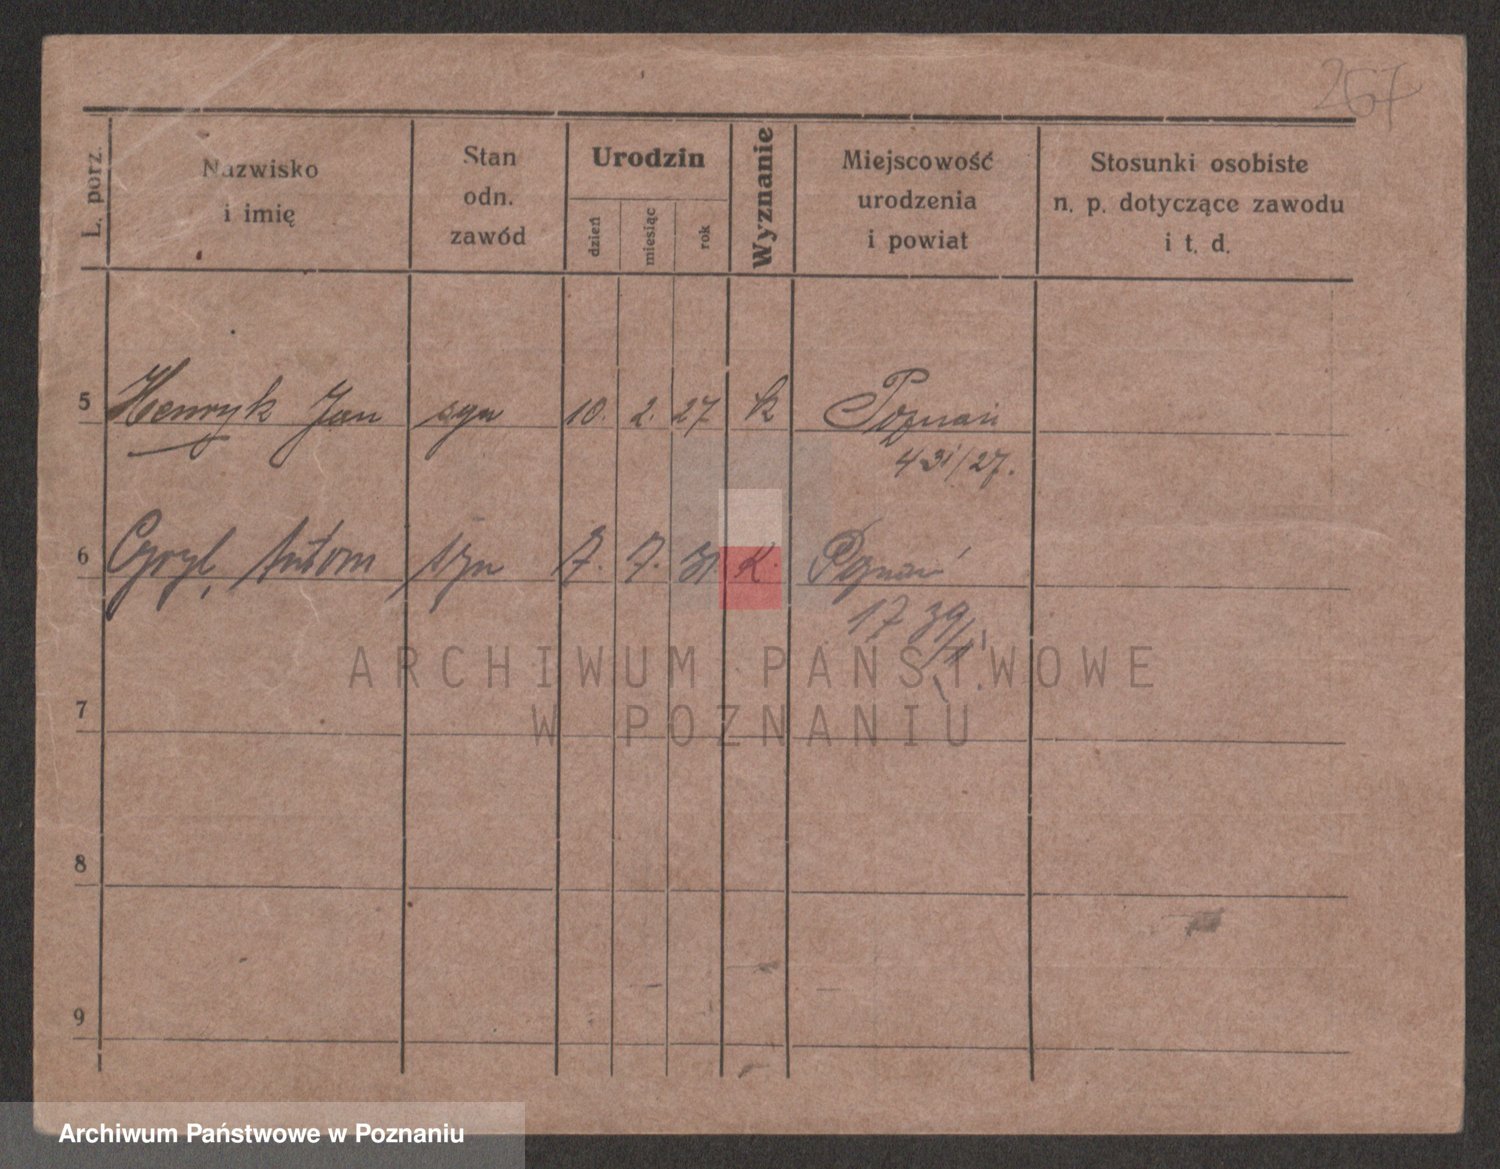 267
L. porz.
Nazwisko
i imię
Stan
odn.
zawód
Urodzin
dzień
miesiąc
rok
Wyznanie
Miejscowość
urodzenia
i powiat
Stosunki osobiste
n. p. dotyczące zawodu
i t. d.
5 Henryk Jan syn 10. 2. 27 k Poznań
431/27.
6 Cyryl, Antoni syn 7. 7. 31 K. Poznań
17 39/11
7
8
9
ARCHIWUM PAŃSTWOWE
W POZNANIU
Archiwum Państwowe w Poznaniu